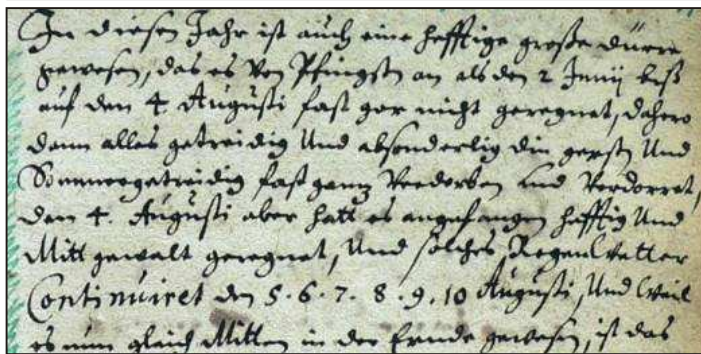 In diesen Jahr ist auch eine hefftige große dürre
gewesen, das es von Pfingsten an als den 2 Junij biß
auf den 4 Augusti fast gar nicht geregnet, dahero
dann alles getreidig Und absonderlig die gersten Und
Sommergetreidig fast ganz Verdorben und Verdorret,
den 4. Augusti aber hatt es angefangen hefftig Und
Mitt gewalt geregnet, Und solches RegenWetter
Continuiret den 5. 6. 7. 8. 9. 10 Augusti, Und Weil
es nun gleich Mitten in der Ernde gewesen, ist das